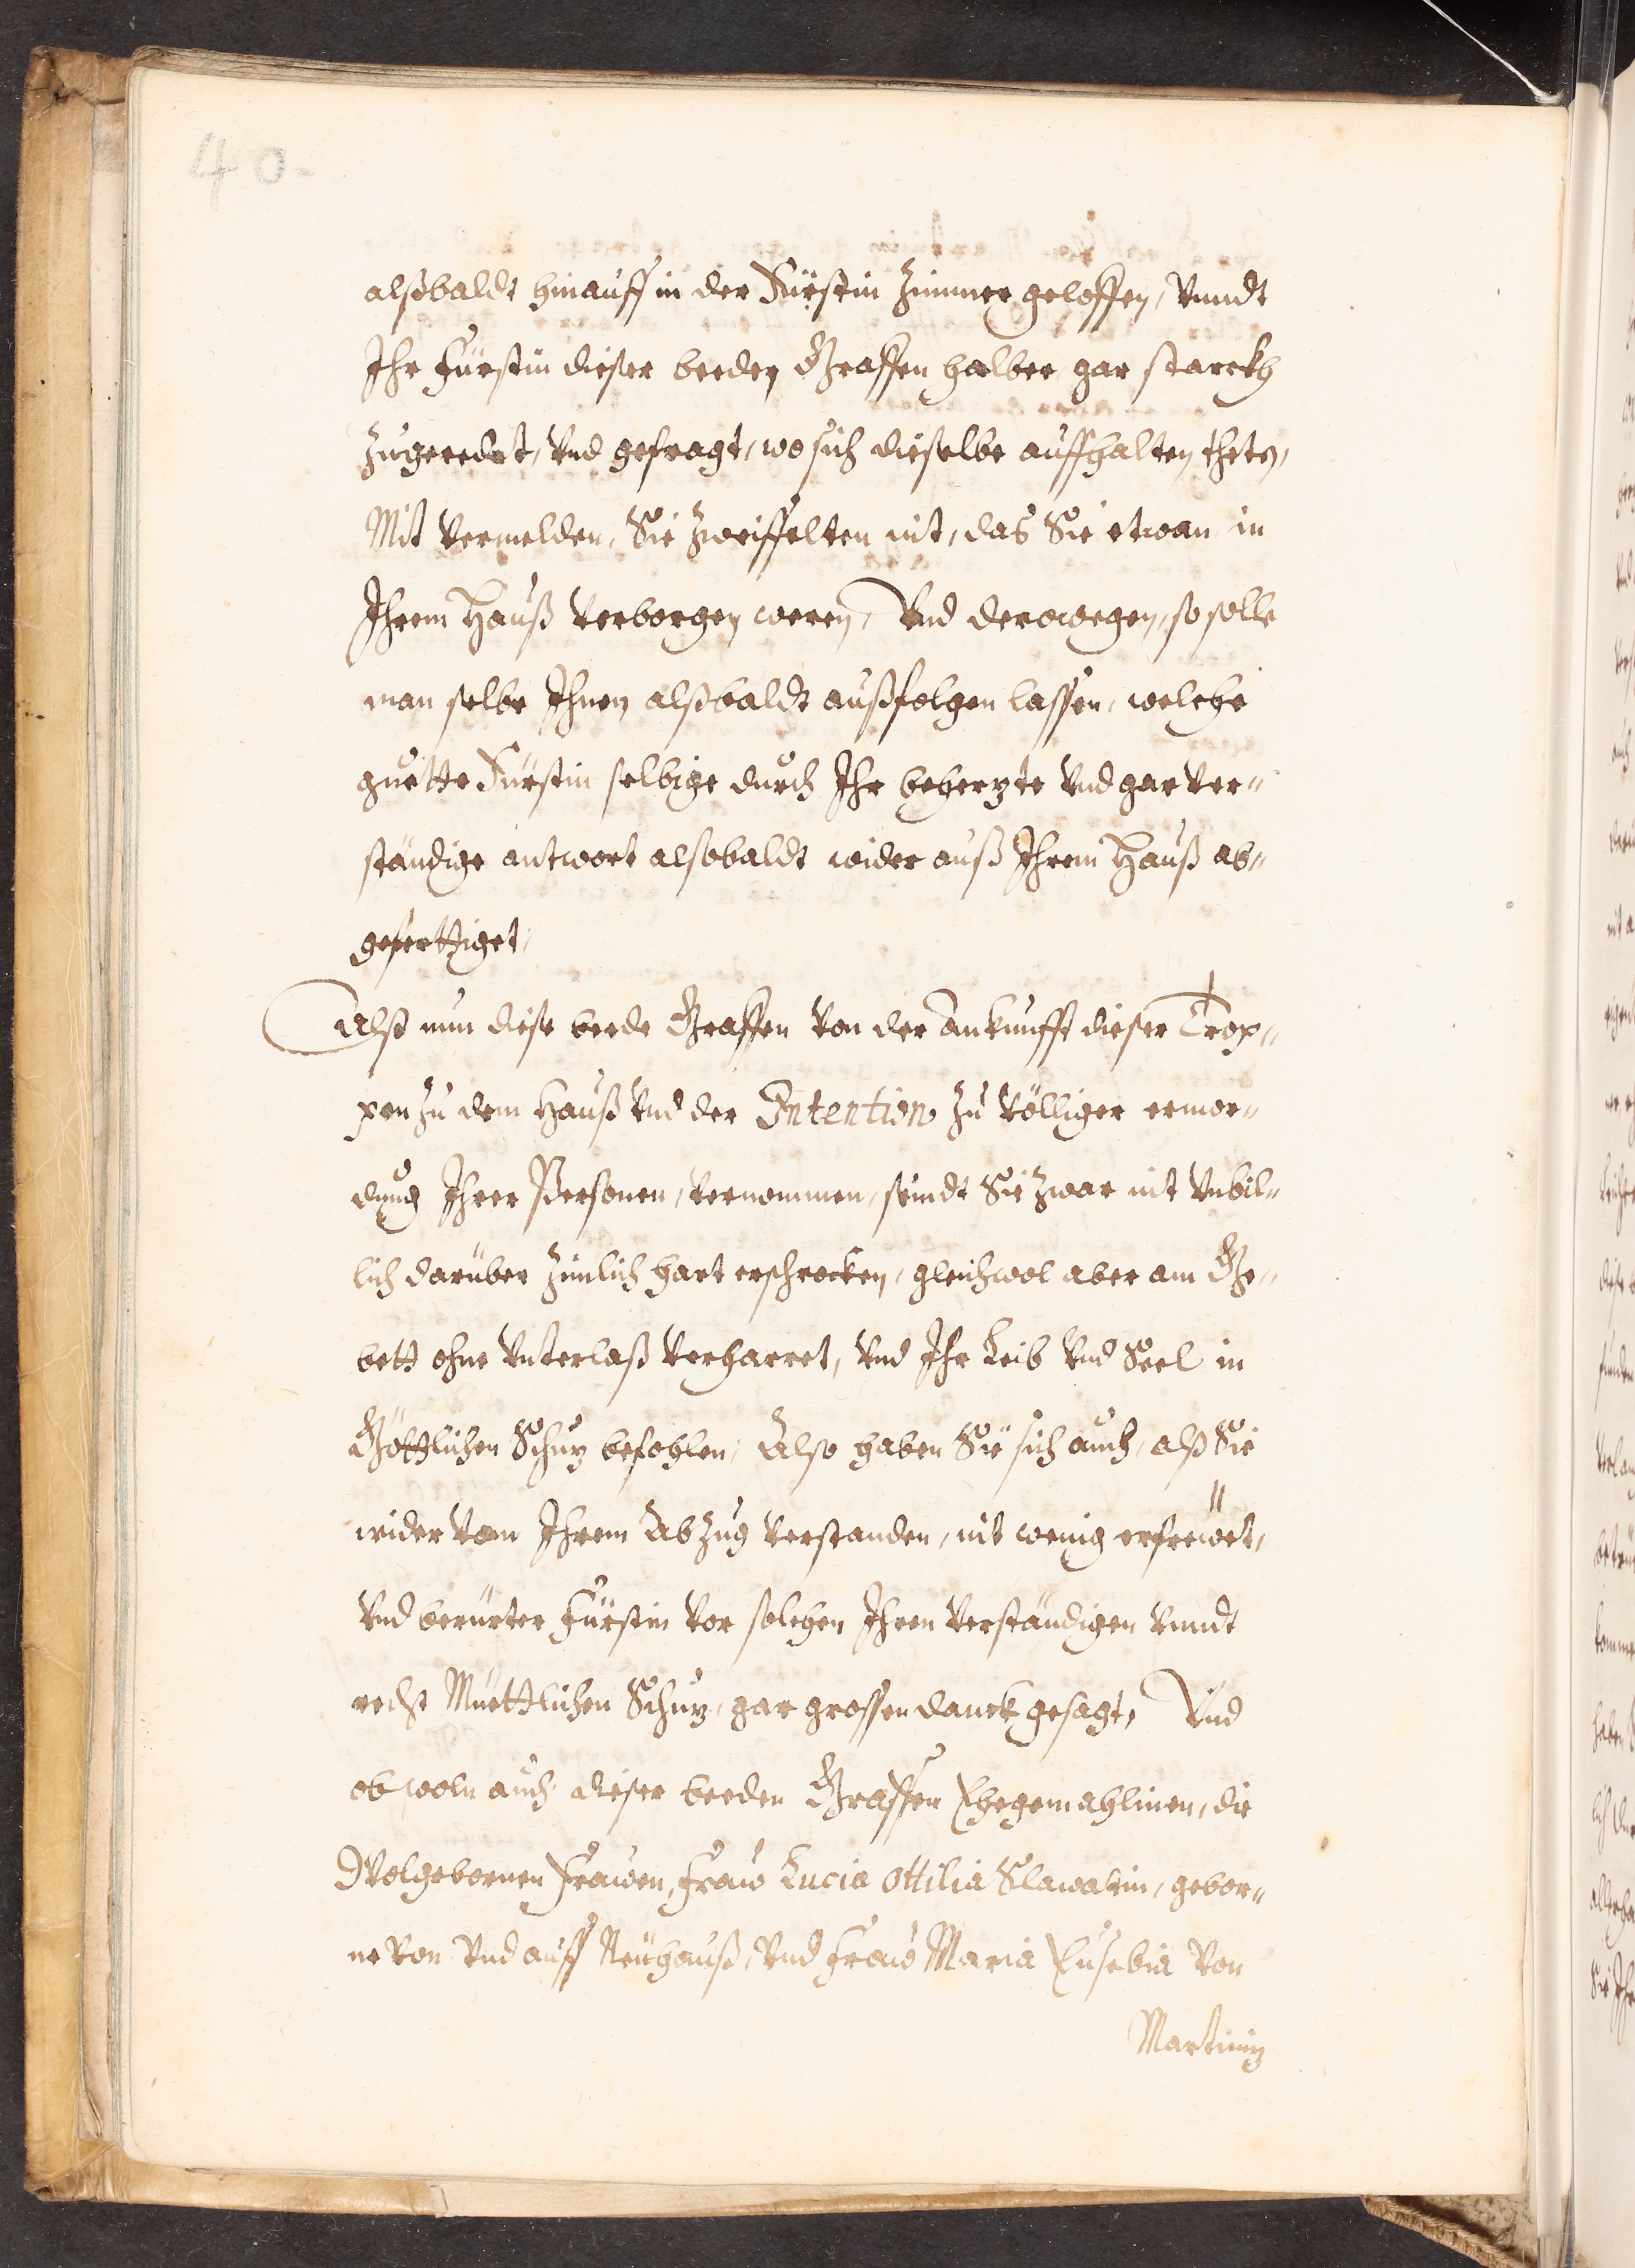 40.
alßbaldt hinauff in der Fürstin Zimmer geloffen, Vnndt
Ihr Fürstin dieser beeden Graffen halber gar starckh
Zugeredet, Vnd gefragt, wo sich dieselbe auffhalten theten,
Mit Vermelden, Sie Zweiffelten nit, das Sie etwan in
Ihrem Hauß Verborgen weren, Vnd derowegen, so solle
man selbe Ihnen alßbaldt außfolgen lassen, welche
guette Fürstin selbige durch Ihr behertzte Vnd gar Ver„
ständige antwort alßobaldt wider auß Ihrem Hauß ab„
gefertiget,
Alß nun diese beede Graffen Von der Ankunfft dieser Trop„
pen Zu dem Hauß Vnd der Intention Zu Völliger ermor„
dung Ihrer Personen, Vernommen, seindt Sie Zwar nit Vnbil„
lich darüber Zimlich hart erschrocken, gleichwol aber am Ge„
bett ohne Vnterlaß Verharret, Vnd Ihr Leib Vnd Seel in
Göttlichen Schutz befohlen, Also haben Sie sich auch, alß Sie
wider Von Ihrem Abzug Verstanden, nit wenig erfrewet,
Vnd berürter Fürstin Vor solchen Ihren Verständigen Vnndt
recht Müettlichen Schutz, gar grossen danck gesagt, Vnd
ob woln auch dieser beeden Graffen Ehegemahlinen, die
Wolgebornen Frawen, Fraw Lucia Ottilia Slawatin, gebor„
ne Von Vnd auff Neuhauß, Vnd Fraw Maria Eusebia Von
Martinitz